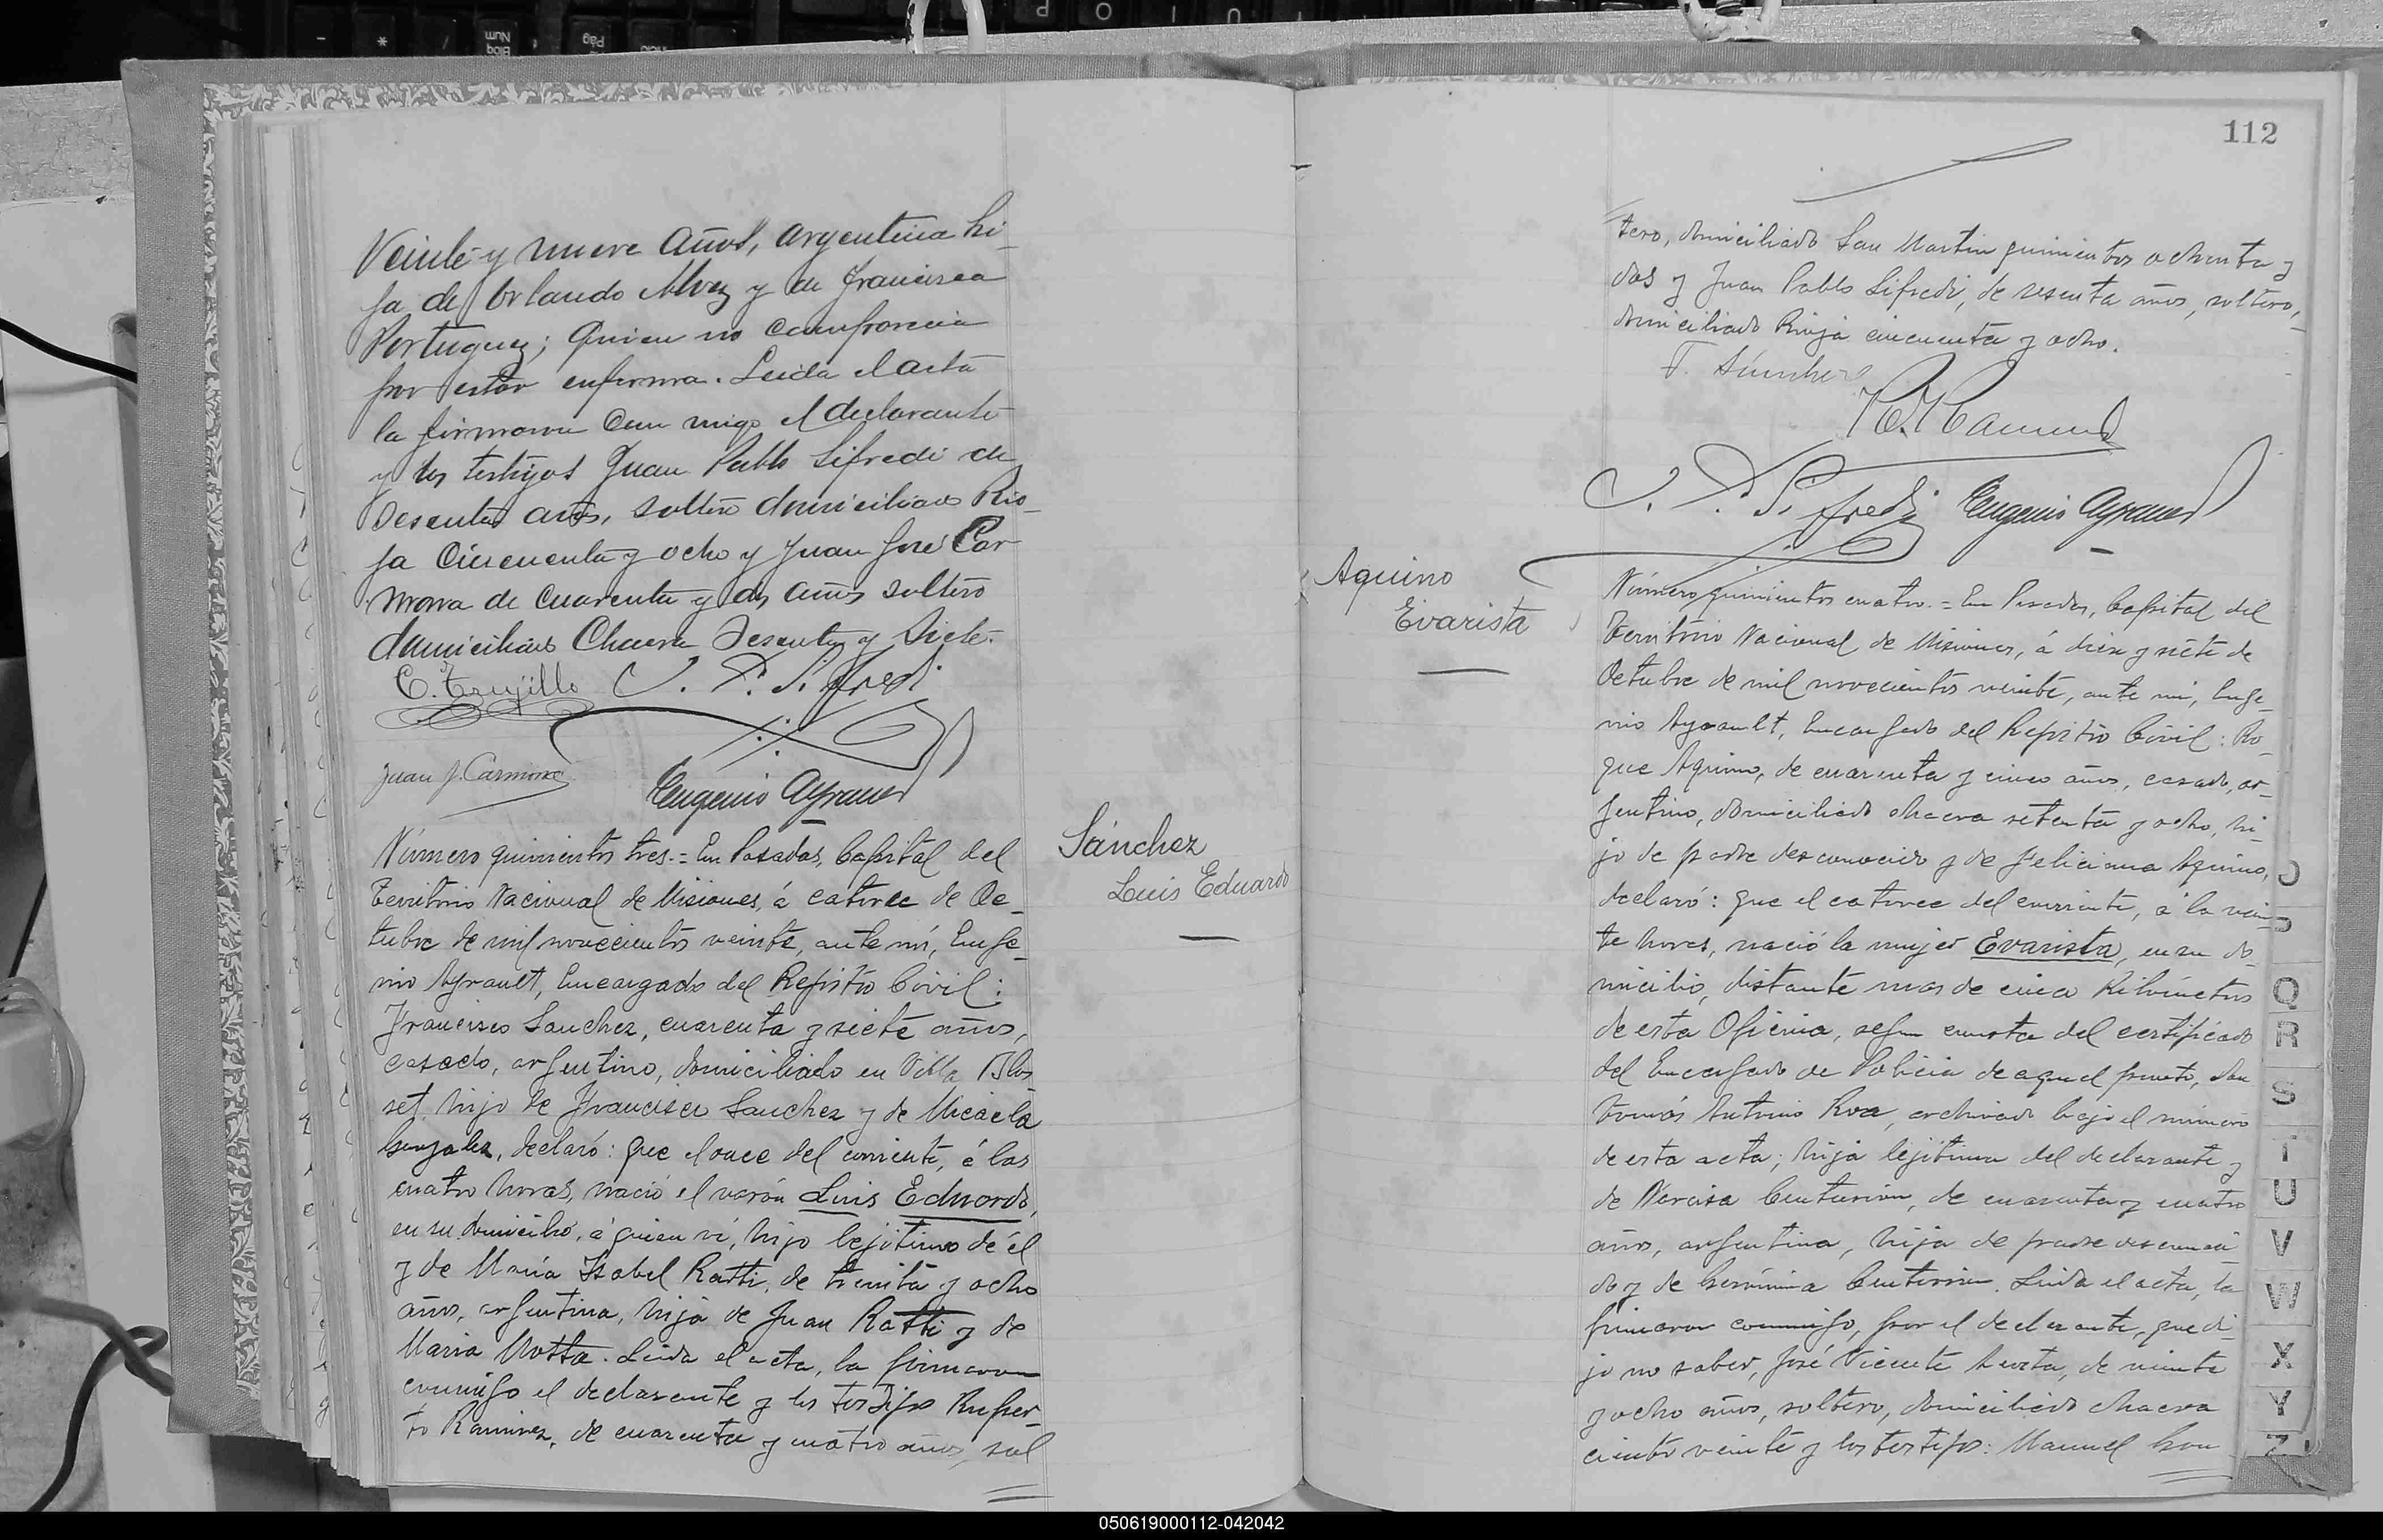 Veinte y nueve años, argentina hi-
ja de Orlando Alvez y de Francisca
Portuguez; quien no comparecia
por estar enferma. Leida el acta
la firmaron con migo el declarante
y los testigos Juan Pablo Sifredi de
sesenta años, soltero domiciliado Rio-
ja Cincuenta y ocho y Juan José Car
mona de cuarenta y dos años soltero
domiciliado Chacra Sesenta y Siete.
C. Trujillo J. P. Sifredi
Juan J. Carmona
Eugenio Ayrault
Número quinientos tres.= En Posadas, Capital del
Territorio Nacional de Misiones, á catorce de Oc-
tubre de mil novecientos veinte, ante mí, Euge-
nio Ayrault, Encargado del Registro Civil:
Francisco Sanchez, cuarenta y siete años,
casado, argentino, domiciliado en Villa Blos
set, hijo de Francisco Sanchez y de Micaela
Gonzalez, declaró: que el once del corriente, á las
cuatro horas, nació el varón Luis Eduardo,
en su domicilio, á quien ví, hijo lejitimo de él
y de María Isabel Ratti, de treinta y ocho
años, argentina, hija de Juan Ratti y de
Maria Motta. Leida el acta, la firmaron
conmigo el declarante y los testigos Ruper-
to Ramirez, de cuarenta y cuatro años, sol
Sánchez
Luis Eduardo
112
tero, domiciliado San Martin quinientos ochenta y
dos y Juan Pablo Sifredi, de sesenta años, soltero,
domiciliado Rioja cincuenta y ocho.
F. Sánchez
R. Ramirez
J. P. Sifredi Eugenio Ayrault
Aquino
Evarista
Número quinientos cuatro.= En Posadas, Capital del
Territorio Nacional de Misiones, á diez y siete de
Octubre de mil novecientos veinte, ante mi, Euge-
nio Ayrault, Encargado del Registro Civil: Ro-
que Aquino, de cuarenta y cinco años, casado, ar-
gentino, domiciliado chacra setenta y ocho, hi-
jo de padre desconocido y de Feliciana Aquino,
declaró: que el catorce del corriente, á la vein-
te horas, nació la mujer Evarista, en su do-
micilio, distante mas de cinco Kilómetros
de esta Oficina, segun consta del certificado
del Encargado de Policia de aquel punto, don
Tomás Antonio Roa, archivado bajo el número
de esta acta; hija lejitima del declarante y
de Narcisa Centurion, de cuarenta y cuatro
años, argentina, hija de padre desconoci
do y de Gerónima Centurion. Leida el acta, la
firmaron conmigo, por el declarante, que di-
jo no saber, José Vicente Acosta, de veinte
y ocho años, soltero, domiciliado chacra
ciento veinte y los testigos: Manuel Gon
Q
R
S
T
U
V
W
X
Y
Z
050619000112-042042